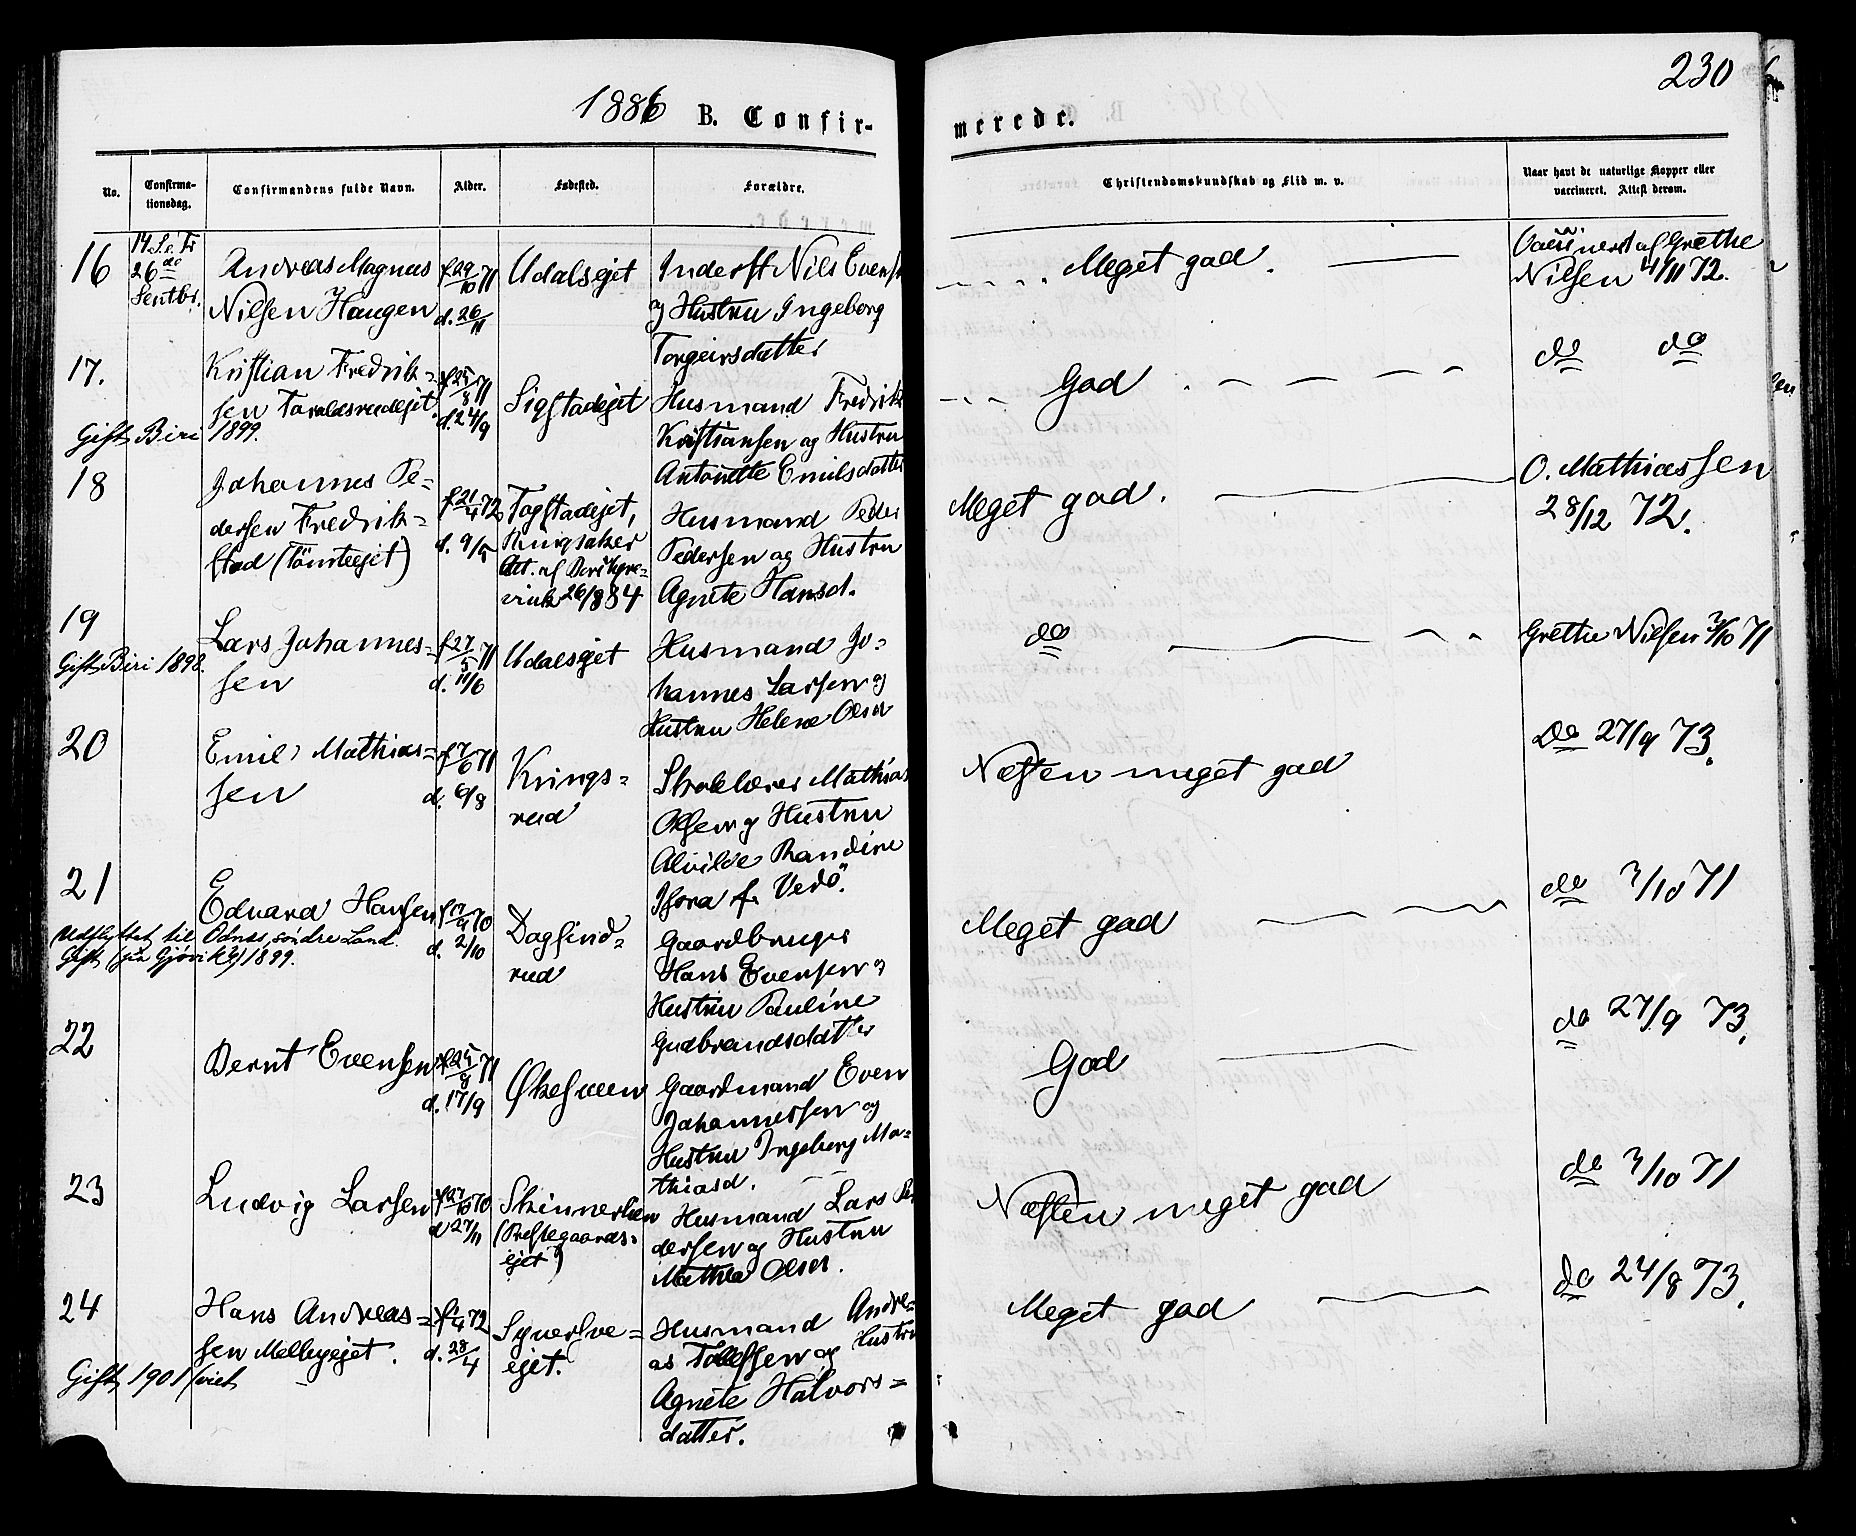 1886 B. Confir-
merede.
230
No.
Confirma-
tionsdag.
Confirmandens fulde Navn.
Alder.
Fødested.
Forældre.
Christendomskundskab og Flid m. v.
Naar havt de naturlige Kopper eller
vaccineret. Attest derom.
16
14 S. e. Tr
26de
Septbr.
Andreas Magnus
Nilsen Haugen
f. 29/10 71
d. 26/11
Udalsejet
Inderst Nils Evens.
og Hustru Ingeborg
Torgeirsdatter
Meget god.
Vaccineret af Grethe
Nilsen 4/11 72.
17.
Gift, Biri 1899.
Kristian Fredrik=
sen Taraldsrudejet.
f. 25/8 71
d. 24/9
Sigstadejet
Husmand Fredrik
Kristiansen og Hustru
Antonette Emilsdatter
God
do do
18
Johannes Pe=
dersen Fredrik=
stad (Tömteejet)
f. 21/4 72
d. 9/5
Togstadejet,
Ringsaker
Att. af
26/8 84
Husmand Peder
Pedersen og Hustru
Agnete Hansd.
Meget god.
O. Mathiassen
28/12 72.
19
Gift, Biri 1898.
Lars Johannes=
sen
f. 27/5 71
d. 11/6
Udalsejet
Husmand Jo=
hannes Larsen og
Hustru Helene Olsd
do
Grethe Nielsen 3/10 71
20
Emil Mathias=
sen
f. 7/6 71
d. 6/8
Krings=
rud
Skolelærer Mathias
Olsen og Hustru
Alvilde Randine
Thora f. Vedö.
Næsten meget god
Do 27/9 73.
21
Udflyttet til Odnes, söndre Land.
Gift (fra Gjövik) 1899.
Edvard Hansen
f. 17/9 70
d. 2/10
Dagfind=
rud
Gaardbruger
Hans Evensen og
Hustru Pauline
Gudbrandsdatter
Meget god
do 3/10 71
22
Bernt Evensen
f. 25/8 71
d. 17/9
Gaardmand Even
Johannessen og
Hustru Ingeborg Ma=
thiasd.
God
do 27/9 73.
23
Ludvig Larsen
f. 27/10 70
d 27/11
Skinnerlien
(Prestegaards=
ejet)
Husmand Lars Pe
dersen og Hustru
Mathea Olsd.
Næsten meget god
do 3/10 71
24
Gift 1901
Hans Andreas=
sen Melbyejet.
f. 1/4 72
d. 28/4
Syversve=
ejet.
Husmand Andre=
as Tollefsen og Hustru
Agnete Halvors=
datter.
Meget god
do 24/8 73.